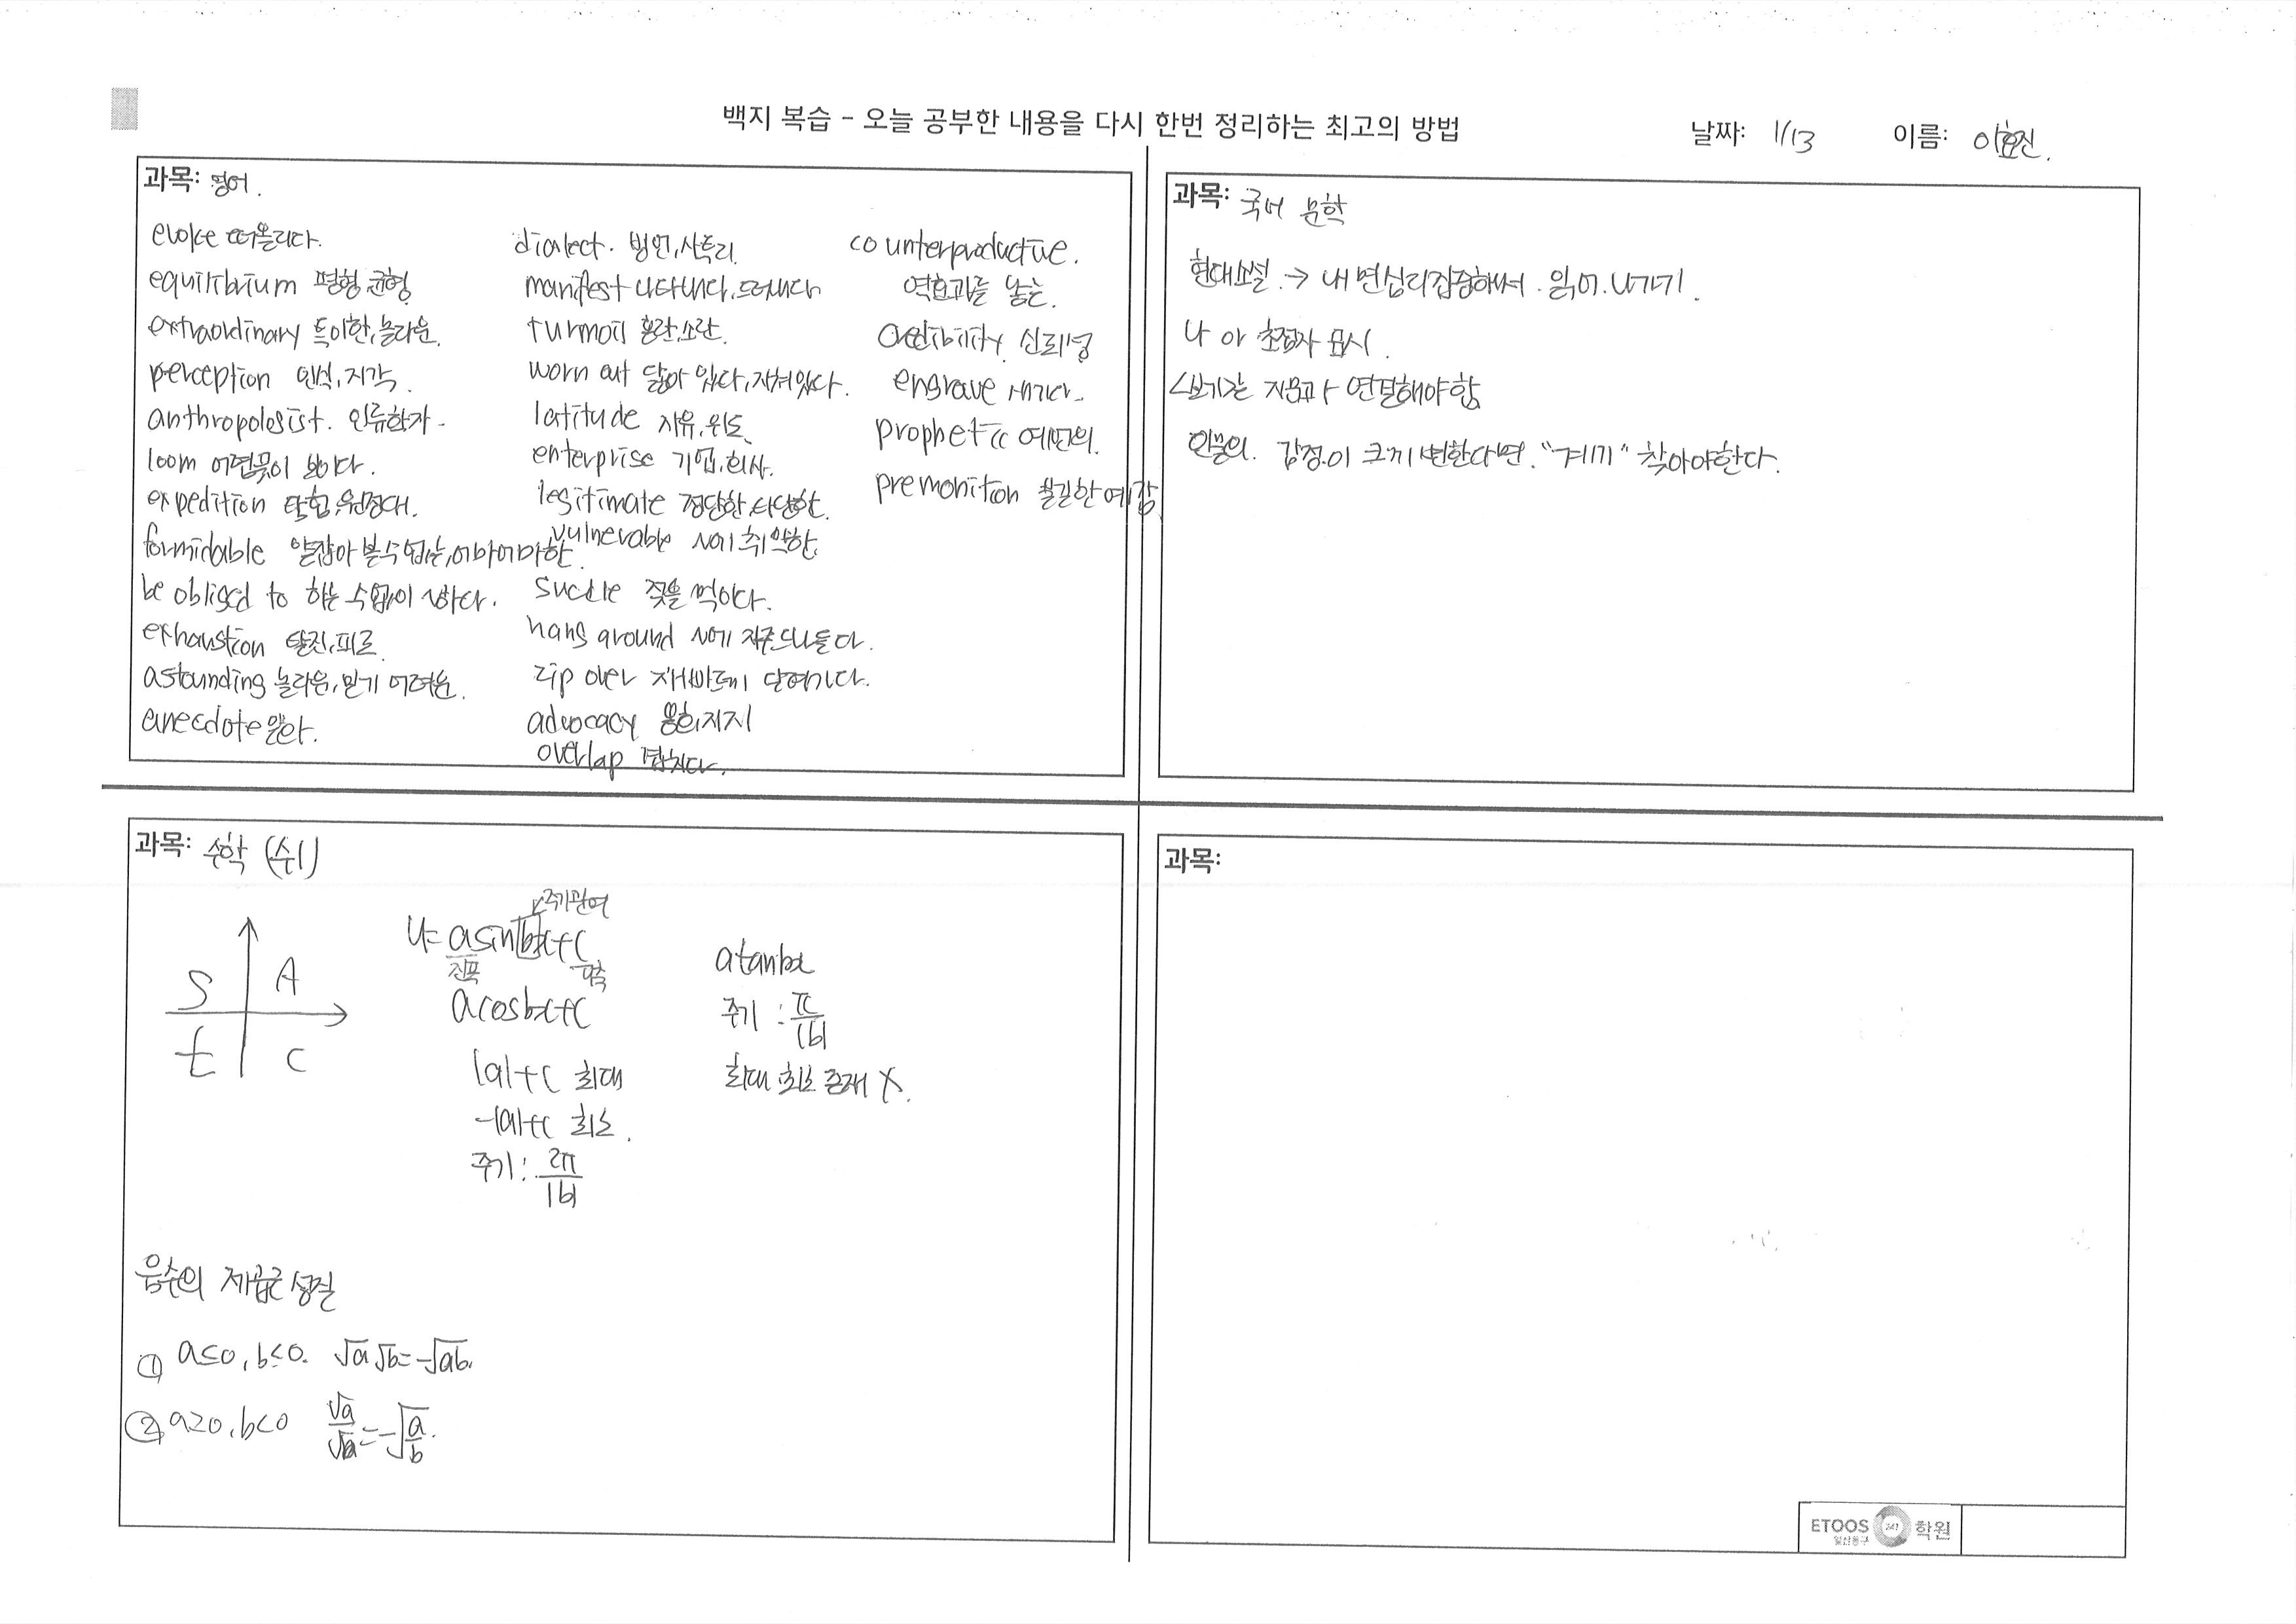 백지 복습 - 오늘 공부한 내용을 다시 한번 정리하는 최고의 방법
날짜: 1/13 이름: 이효진.
과목: 영어.
evoke 떠올리다.
equilibrium 평형, 균형
extraordinary 특이한, 놀라운.
perception 인식, 지각.
anthropologist. 인류학자.
loom 어렴풋이 보이다.
expedition 탐험, 원정대.
formidable 얕잡아 볼 수 없는, 어마어마한.
be obliged to 하는 수 없이 ~하다.
exhaustion 탈진, 피로
astounding 놀라운, 믿기 어려운.
anecdote 일화.
dialect. 방언, 사투리
manifest 나타내다, 드러내다
turmoil 혼란, 소란.
worn out 닳아 있다, 지쳐있다.
latitude 자유, 위도
enterprise 기업, 회사.
legitimate 정당한, 타당한.
vulnerable ~에 취약한.
suckle 젖을 먹이다.
hang around ~에 자주 드나들다.
zip over 재빠르게 달려가다.
advocacy 옹호, 지지
overlap 겹치다.
counterproductive.
역효과를 낳는.
credibility 신뢰성
engrave 새기다.
prophetic 예언의.
premonition 불길한 예감
과목: 국어 문학
현대소설 → 내면심리집중해서 읽어 나가기.
나 아 초점자 표시.
<보기>는 지문과 연결해야함
인물의 감정이 크게 변한다면 "계기" 찾아야한다.
과목: 수학 (수1)
S A
t C
주기관여
y= asinbx+c
진폭
acosbx+c
|a|+c 최대
-|a|+c 최소.
주기: 2π/|b|
atanbx
주기: π/|b|
최대 최소 존재 X.
음수의 제곱근 성질
① a≤0, b≤0. √a√b=-√ab.
② a≥0, b<0
과목:
ETOOS 247 학원